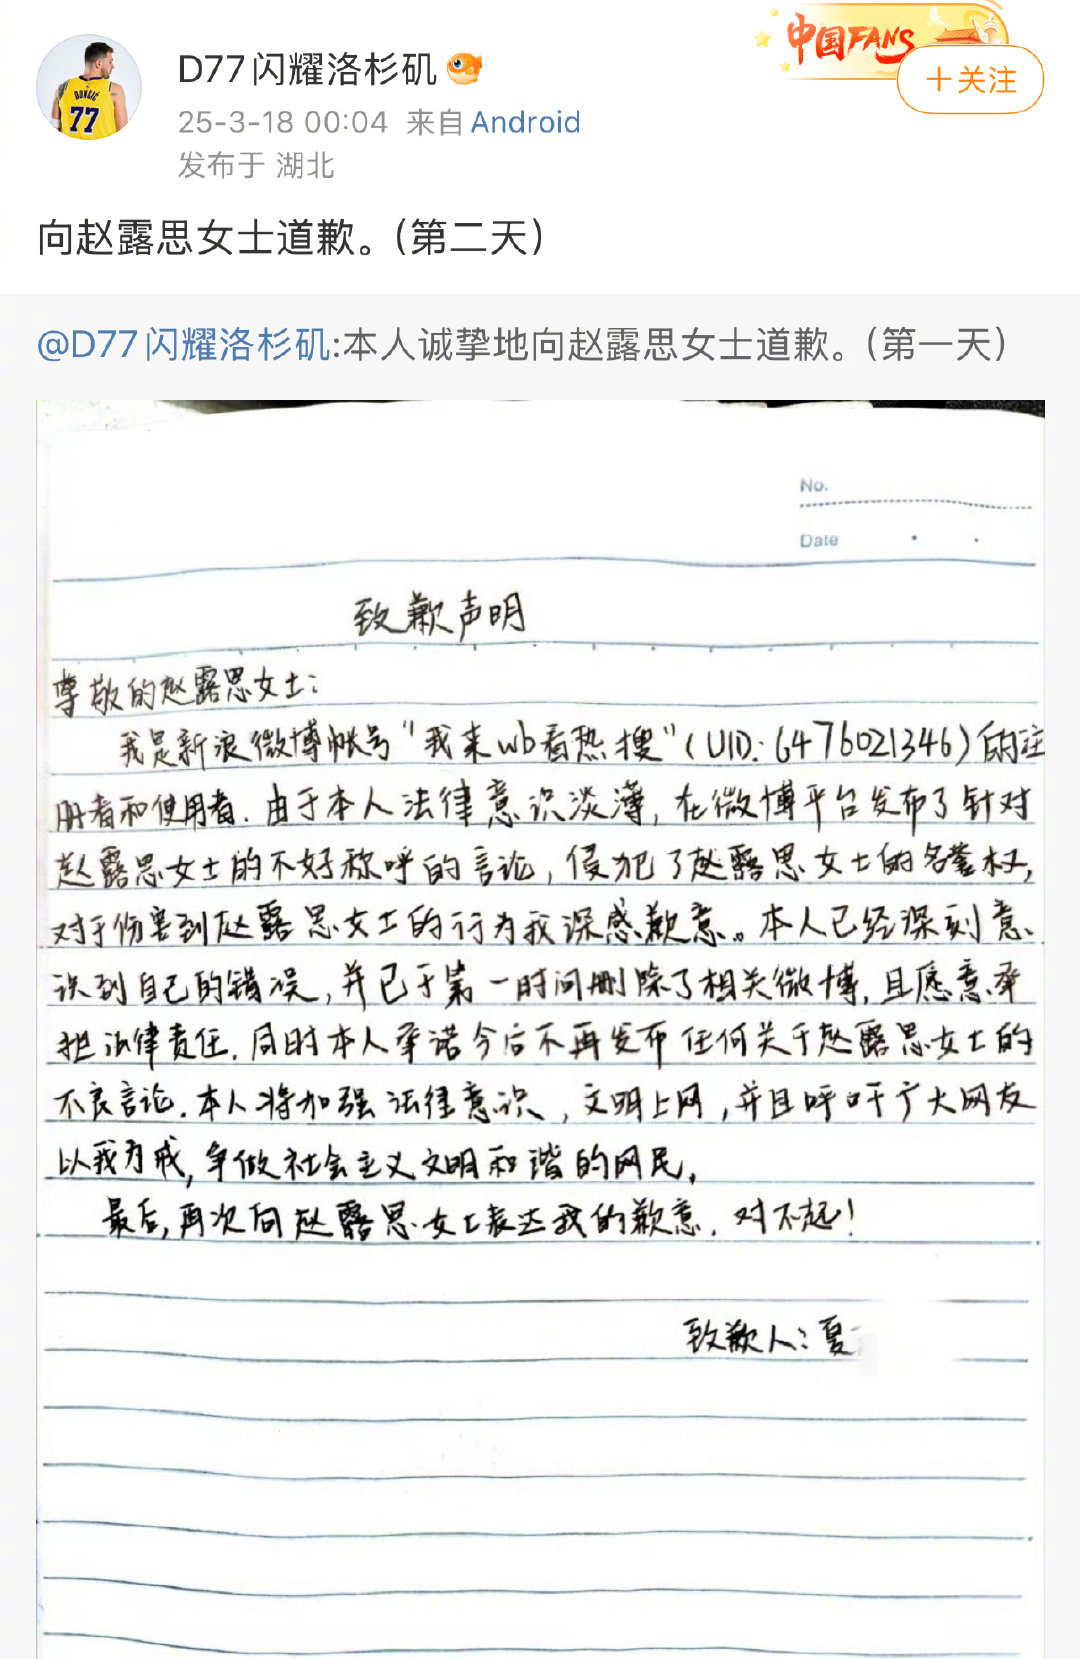 中国FANS
D77闪耀洛杉矶
+关注
25-3-18 00:04 来自 Android
发布于 湖北
DONCIC
77
向赵露思女士道歉。（第二天）
@D77闪耀洛杉矶:本人诚挚地向赵露思女士道歉。（第一天）
No.
Date
致歉声明
尊敬的赵露思女士：
我是新浪微博帐号“我来wb看热搜”（UID：6476021346）的注
册者和使用者．由于本人法律意识淡薄，在微博平台发布了针对
赵露思女士的不好称呼的言论，侵犯了赵露思女士的名誉权，
对于伤害到赵露思女士的行为我深感歉意。本人已经深刻意
识到自己的错误，并已于第一时间删除了相关微博，且愿意承
担法律责任．同时本人承诺今后不再发布任何关于赵露思女士的
不良言论．本人将加强法律意识，文明上网，并且呼吁广大网友
以我为戒，争做社会主义文明和谐的网民．
最后，再次向赵露思女士表达我的歉意．对不起！
致歉人：夏